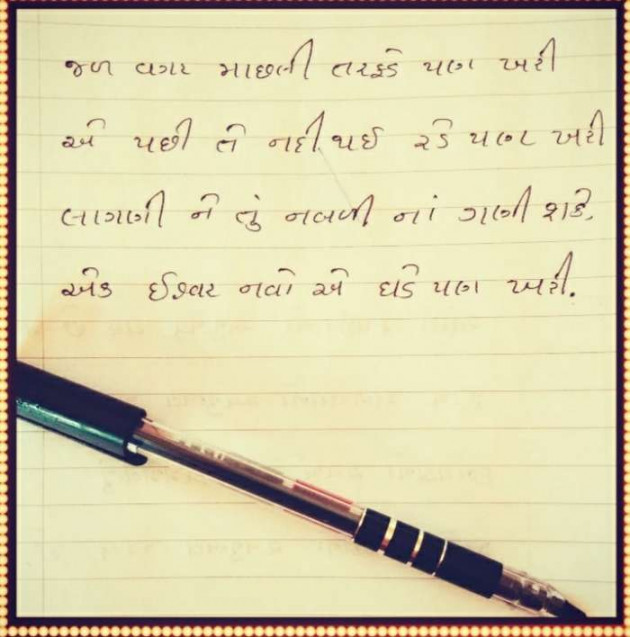 જળ વગર માછલી તરફડે પણ ખરી
એ પછી તો નદી થઈ રડે પણ ખરી
લાગણી ને તું નબળી નાં ગણી શકે,
એક ઈશ્વર નવો એ ઘડે પણ ખરી.